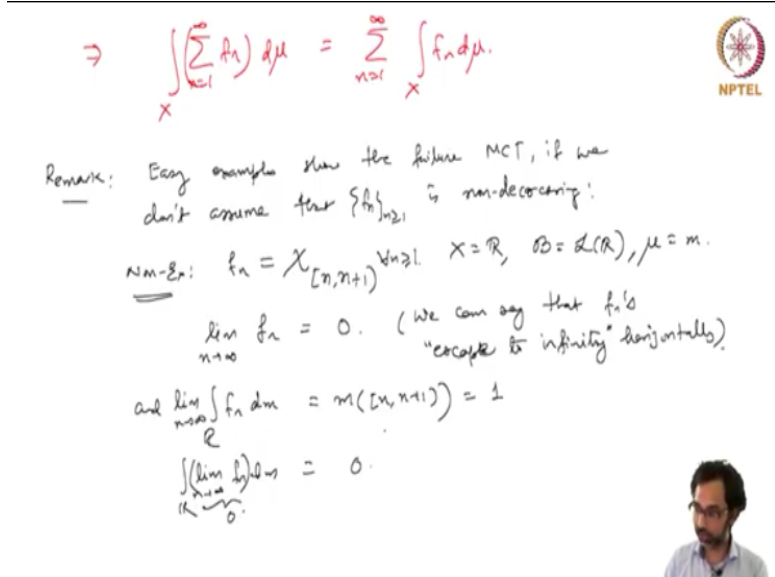 ⇒ ∫_X (∑_{n=1}^∞ f_n) dμ = ∑_{n≥1}^∞ ∫_X f_n dμ.
NPTEL
Remark: Easy examples show the failure MCT, if we
don't assume that {f_n}_{n≥1} is non-decreasing:
Non-Ex: f_n = χ_{[n,n+1)} ∀n≥1. X = ℝ, ℬ = ℒ(ℝ), μ = m.
lim_{n→∞} f_n = 0. (We can say that f_n's
"escape to infinity" horizontally).
and lim_{n→∞} ∫_ℝ f_n dm = m([n, n+1)) = 1
∫_ℝ (lim_{n→∞} f_n) dm = 0.
0.